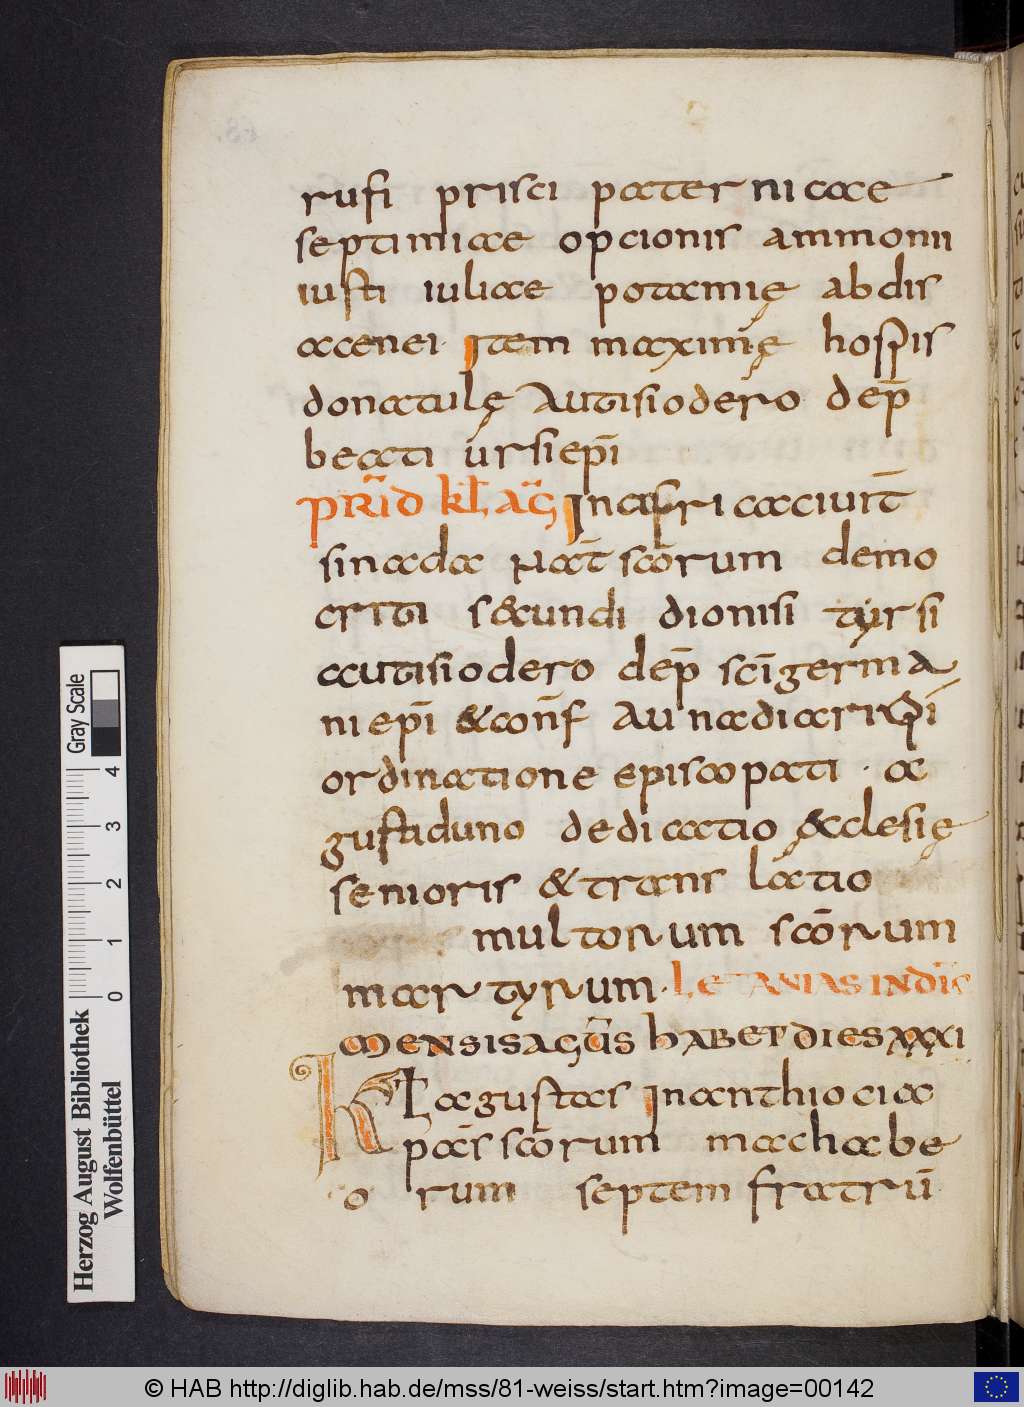 rufi prisci paternicae
septimiae opcionis ammonii
iusti iuliae potamię abdis
acenei. Item maximę hospis
donatulę Autisiodero dep̄
beati ursi ep̄i
PRID KL AG In africa ciuit̄
sinada Nat̄ scōrum demo
criti s&cundi dionisi tyrsi
autisiodero dep̄ scī germa
ni ep̄i & conf̄ Aunadiari ep̄i
ordinatione episcopati · a
gustiduno dedicatio &clesię
senioris & translatio
multorum scōrum
martyrum. LETANIAS INDIC
MENSIS AGUS HABET DIES XXXI
KL agustas In anthiocia
pas scōrum machabe
orum septem fratrū
Gray Scale
4 3 2 1 0
Herzog August Bibliothek
Wolfenbüttel
© HAB http://diglib.hab.de/mss/81-weiss/start.htm?image=00142